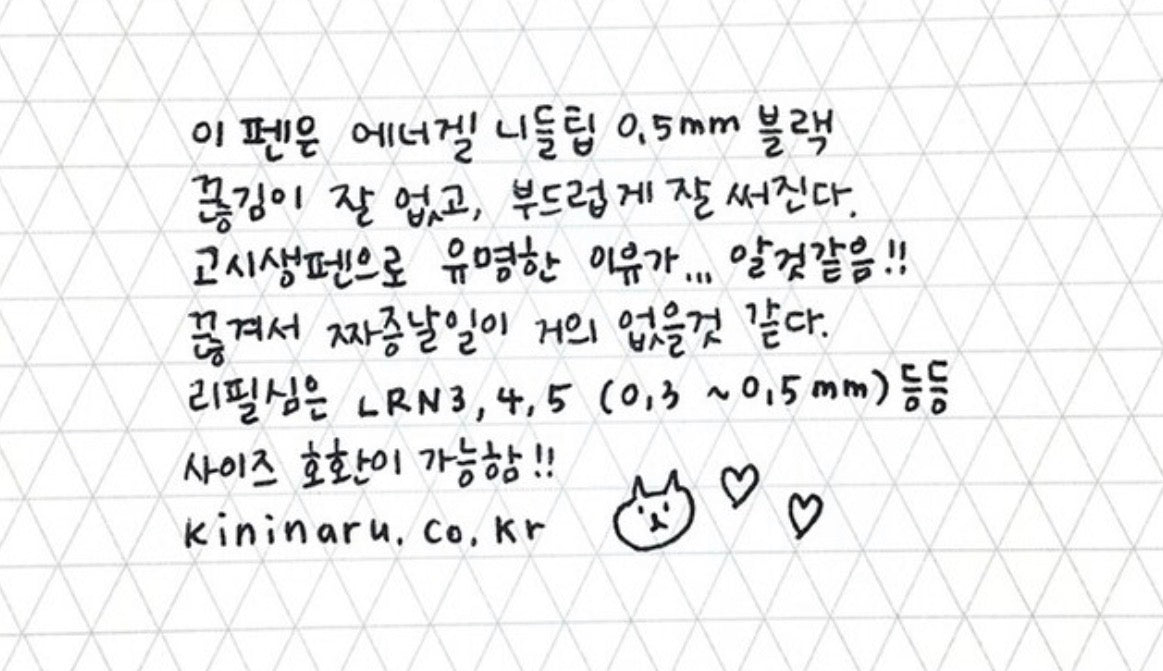 이 펜은 에너겔 니들팁 0.5mm 블랙
끊김이 잘 없고, 부드럽게 잘 써진다.
고시생펜으로 유명한 이유가... 알것같음!!
끊겨서 짜증날일이 거의 없을것 같다.
리필심은 LRN3, 4, 5 (0.3 ~0.5mm) 등등
사이즈 호환이 가능함!!
kininaru. co. kr